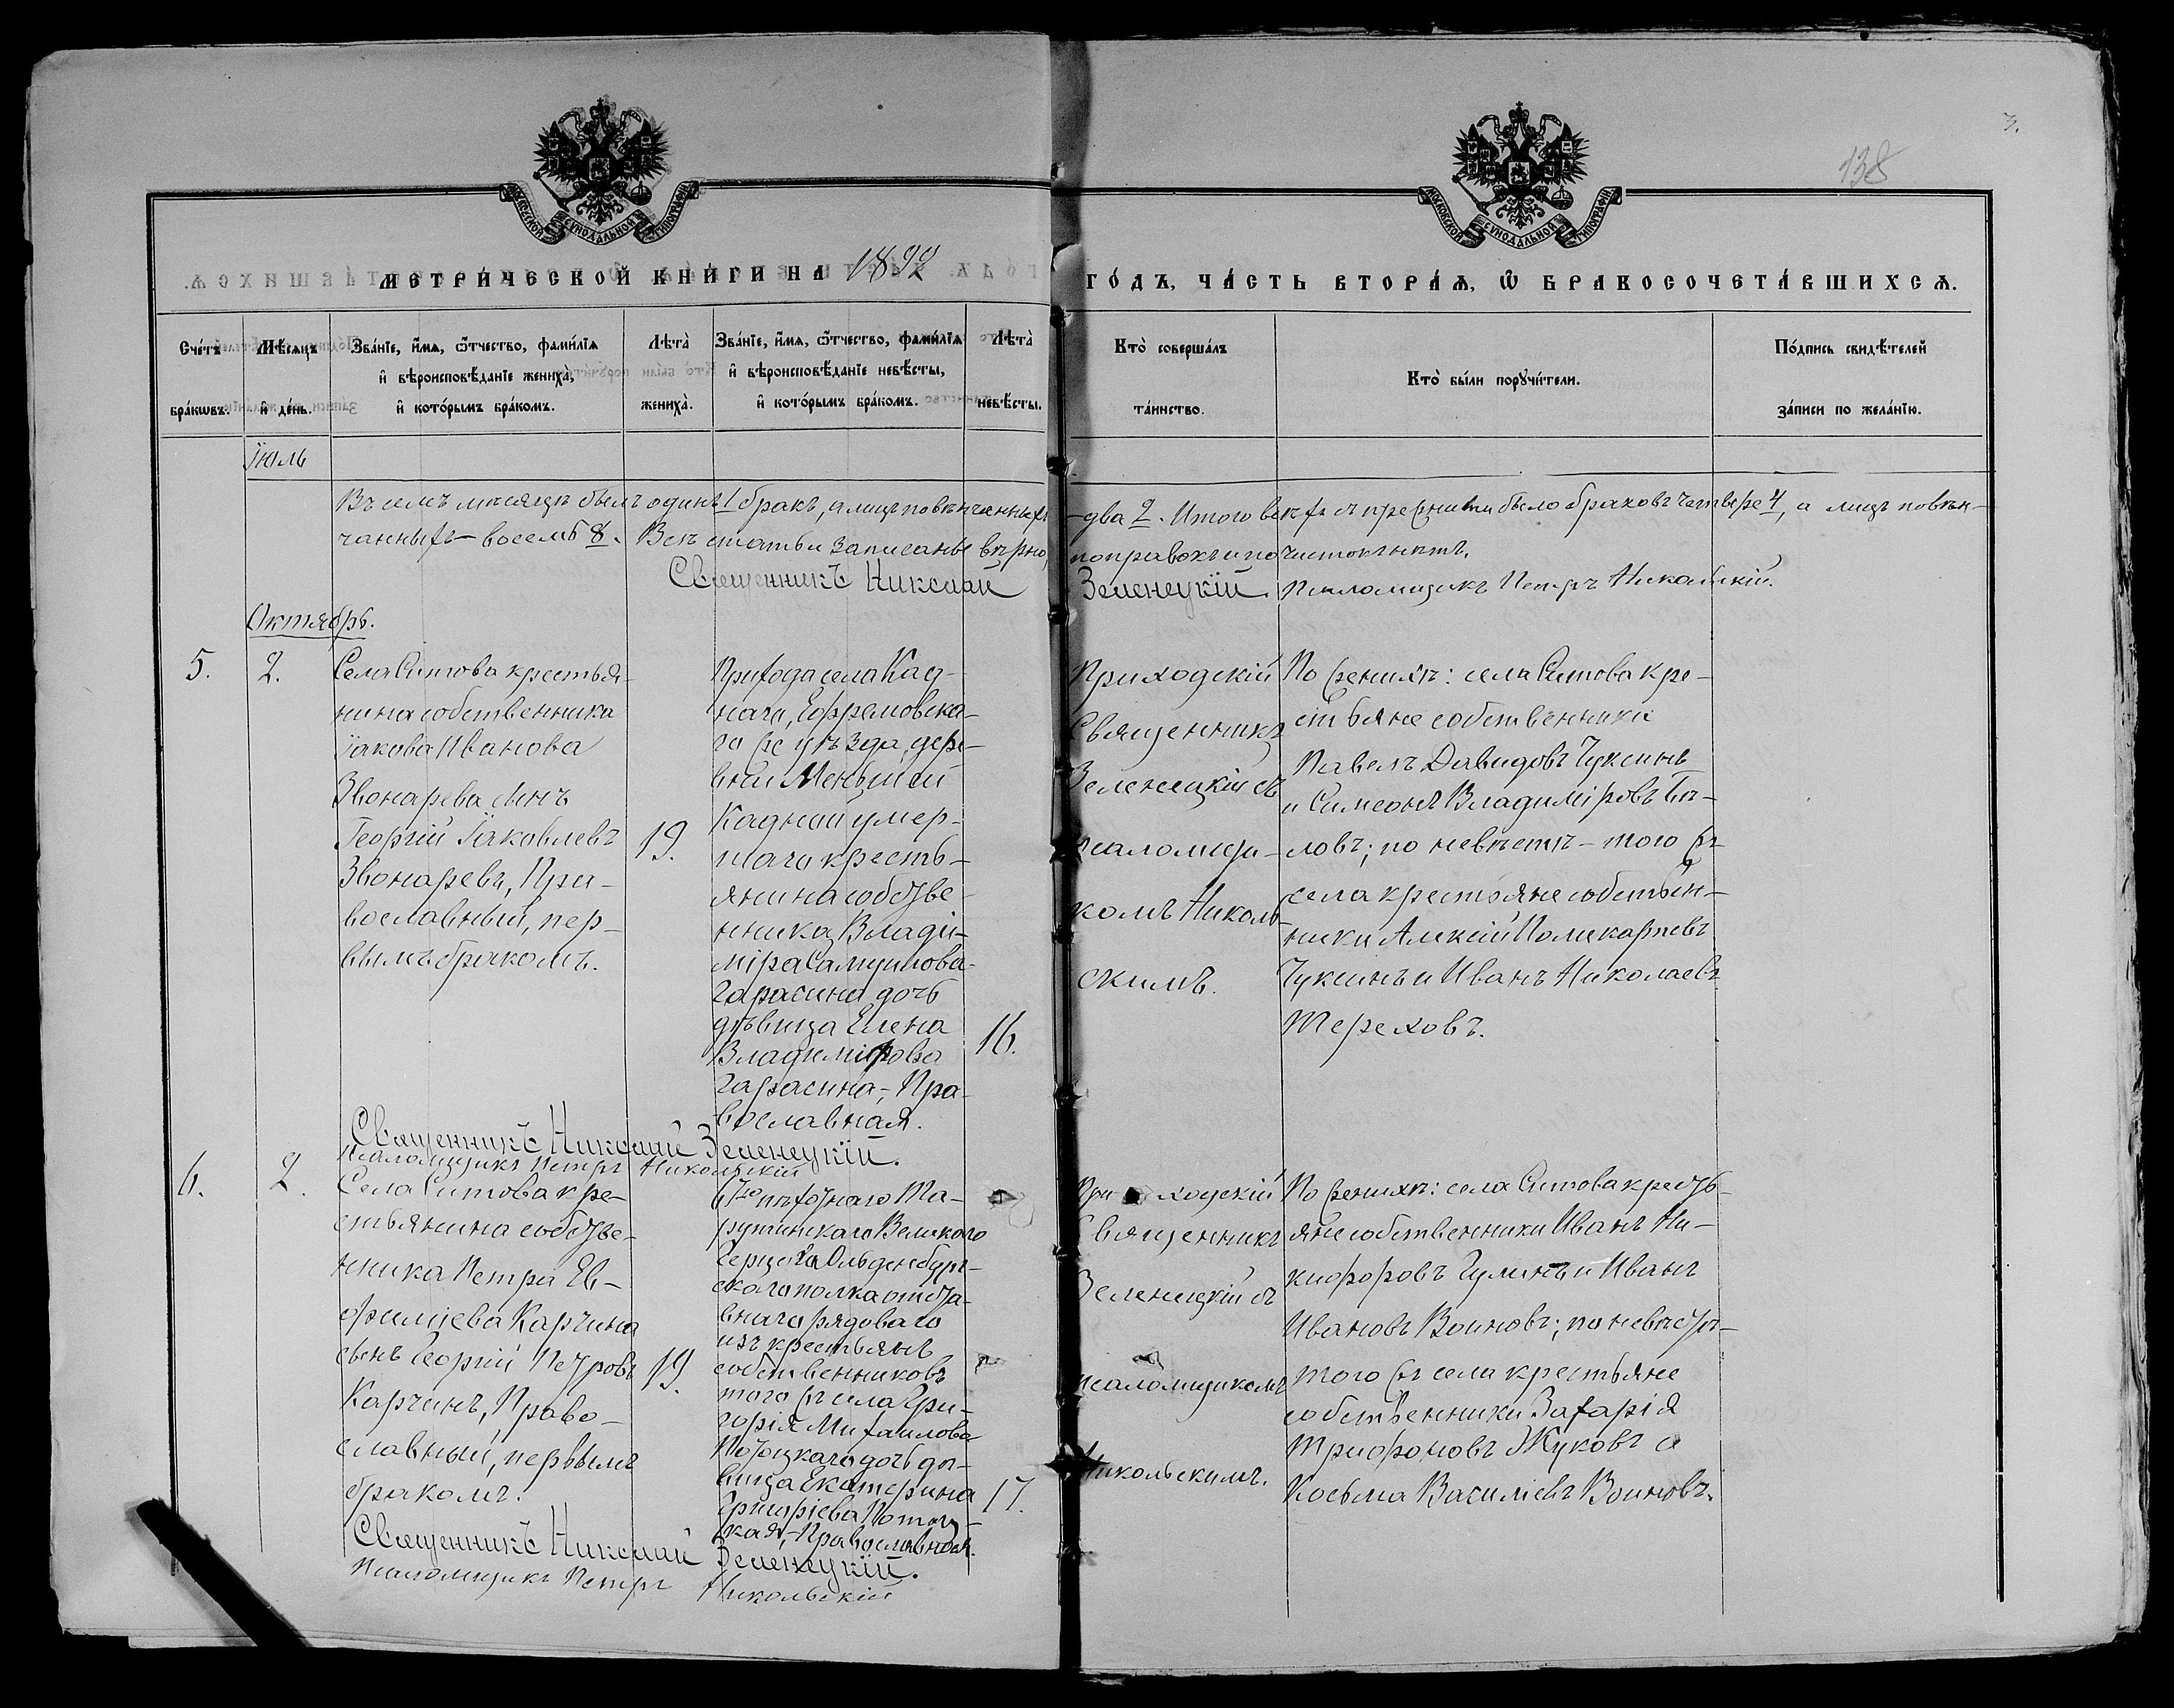 3.
138
МОСКОВСКОЙ СѴНОДАЛЬНОЙ ТИПОГРАФІИ
МОСКОВСКОЙ СѴНОДАЛЬНОЙ ТИПОГРАФІИ
МЕТРИ́ЧЕСКОЙ КНИ́ГИ НА 1892 ГО́ДЪ, ЧА́СТЬ ВТОРА́Ѧ, Ѽ БРАКОСОЧЕТА́ВШИХСѦ.
Сче́тъ бра́кѡвъ.
Мѣ́сѧцъ и҆ де́нь.
Зва́нїе, и҆́мѧ, ѻ҆́тчество, фами́лїѧ
и҆ вѣроисповѣ́данїе жениха̀,
и҆ кото́рымъ бра́комъ.
Лѣ́та̀ жениха̀.
Зва́нїе, и҆́мѧ, ѻ҆́тчество, фами́лїѧ
и҆ вѣроисповѣ́данїе невѣ́сты,
и҆ кото́рымъ бра́комъ.
Лѣ́та̀ невѣ́сты.
Кто̀ соверша́лъ
та́инство.
Кто̀ бы́ли порꙋчи́тели.
По́дпись свидѣ́телей
за́писи по жела́нїю.
Іюль
Въ семъ мѣсяцѣ былъ одинъ 1 бракъ, а лицъ повѣнчанныхъ
- два 2. Итого всѣхъ съ прежними было браковъ четыре 4, а лицъ повѣн-
чанныхъ - восемь 8. Всѣ статьи записаны вѣрно,
поправокъ и почистокъ нѣтъ.
Священникъ Николай Зеленецкій. Псаломщикъ Петръ Никольскій.
Октябрь.
5.
2.
Села Ситова крестья-
нина собственника
Іакова Иванова
Звонарева сынъ
Георгій Іаковлевъ
Звонаревъ, Пра-
вославный, пер-
вымъ бракомъ.
19.
Прихода села Кад-
наго, Ефремовска-
го же уѣзда, дере-
вни Меньшой
Кадной умер-
шаго кресть-
янина собстве-
нника Влади-
міра Самуилова
Гарасина дочь
дѣвица Елена
Владимірова
Гарасина, - Пра-
вославная.
16.
Приходскій
Священникъ
Зеленецкій съ
псаломщи-
комъ Николь-
скимъ.
По женихѣ: села Ситова кре-
стьяне собственники
Павелъ Давидовъ Чуксинъ
и Симеонъ Владиміровъ Бѣ-
ловъ; по невѣстѣ - того же
села крестьяне собствен-
ники Алексій Поликарповъ
Чуксинъ и Иванъ Николаевъ
Тереховъ.
Священникъ Николай Зеленецкій.
Псаломщикъ Петръ Никольскій
6.
2.
Села Ситова кре-
стьянина собстве-
нника Петра Ев-
фиміева Карчина
сынъ Георгій Петровъ
Карчинъ, Право-
славный, первымъ
бракомъ.
19.
пѣхотнаго Та-
рутинскаго Великаго
Герцога Ольденбург-
скаго полка отста-
внаго рядоваго
изъ крестьянъ
собственниковъ
того же села Гри-
горія Михаилова
Потоцкаго дочь дѣ-
вица Екатерина
Григоріева Потоц-
кая, - Православная.
17.
Приходскій
Священникъ
Зеленецкій съ
псаломщикомъ
Никольскимъ.
По женихѣ: села Ситова кресть-
яне собственники Иванъ Ни-
кифоровъ Гулинъ и Иванъ
Ивановъ Воиновъ; по невѣстѣ-
того же села крестьяне
собственники Захарія
Трифоновъ Жуковъ и
Косьма Василіевъ Воиновъ.
Священникъ Николай Зеленецкій.
Псаломщикъ Петръ Никольскій